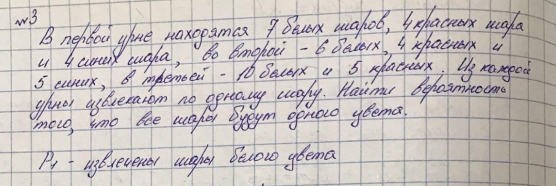 №3
В первой урне находятся 7 белых шаров, 4 красных шара
и 4 синих шара, во второй - 6 белых, 4 красных и
5 синих, в третьей - 10 белых и 5 красных. Из каждой
урны извлекают по одному шару. Найти вероятность
того, что все шары будут одного цвета.
P₁ - извлечены шары белого цвета